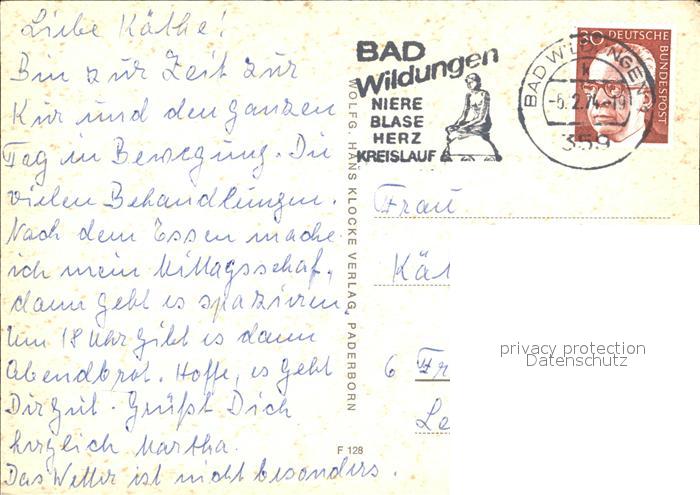 Liebe Käthe!
Bin zur Zeit zur
Kur und den ganzen
Tag in Bewegung. Die
vielen Behandlungen.
Nach dem Essen mache
ich mein Mittagsschaf,
dann geht es spaziren.
Um 18 Uhr gibt es dann
Abendbrot. Hoffe, es geht
Dir gut. Grüßt Dich
herzlich Martha.
Das Wetter ist nicht besonders.
WOLFG. HANS KLOCKE VERLAG, PADERBORN
F 128
BAD
Wildungen
NIERE
BLASE
HERZ
KREISLAUF
BAD WILDUNGEN
k
-6.2.74-19
359
30 DEUTSCHE
BUNDESPOST
Frau
Kät
6 Fr
Le
privacy protection
Datenschutz